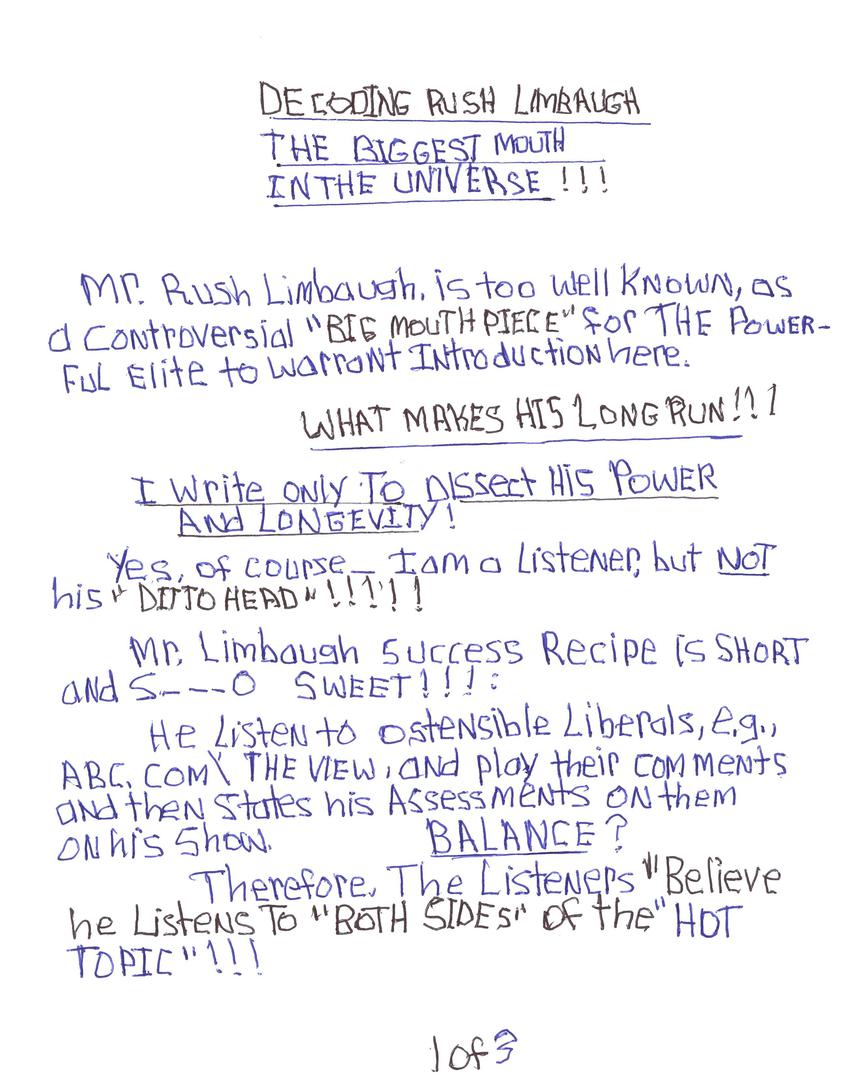 DECODING RUSH LIMBAUGH
THE BIGGEST MOUTH
IN THE UNIVERSE !!!
Mr. Rush Limbaugh, is too well KNOWN, as
a CONtroversial "BIG MOUTH PIECE" for THE POWER-
FUL Elite to warrant INtroduction here.
WHAT MAKES HIS LONG RUN!!!
I Write ONLY TO DISSect HIS POWER
AND LONGEVITY!
Yes, of course_ I am a Listener, but NOT
his "DITTO HEAD"!!!!!!
Mr. Limbaugh Success Recipe is SHORT
aND S---O SWEET!!!:
He Listen to ostensible Liberals, e.g.,
ABC.COM\ THE VIEW, aND play their COMMENTS
aND then States his ASSESSMENTS ON them
ON his Show. BALANCE?
Therefore, The Listeners "Believe
he Listens To "BOTH SIDES" Of the "HOT
TOPIC"!!!
1 of 3